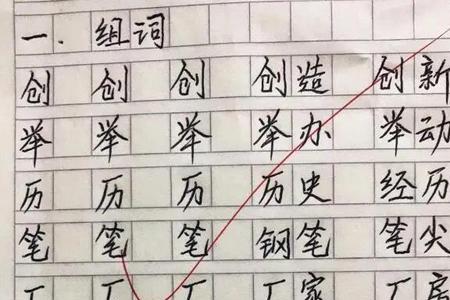 一.组词
创创创创造创新
举举举举办举动
历历历历史经历
笔笔笔钢笔笔尖
厂厂厂厂家厂房